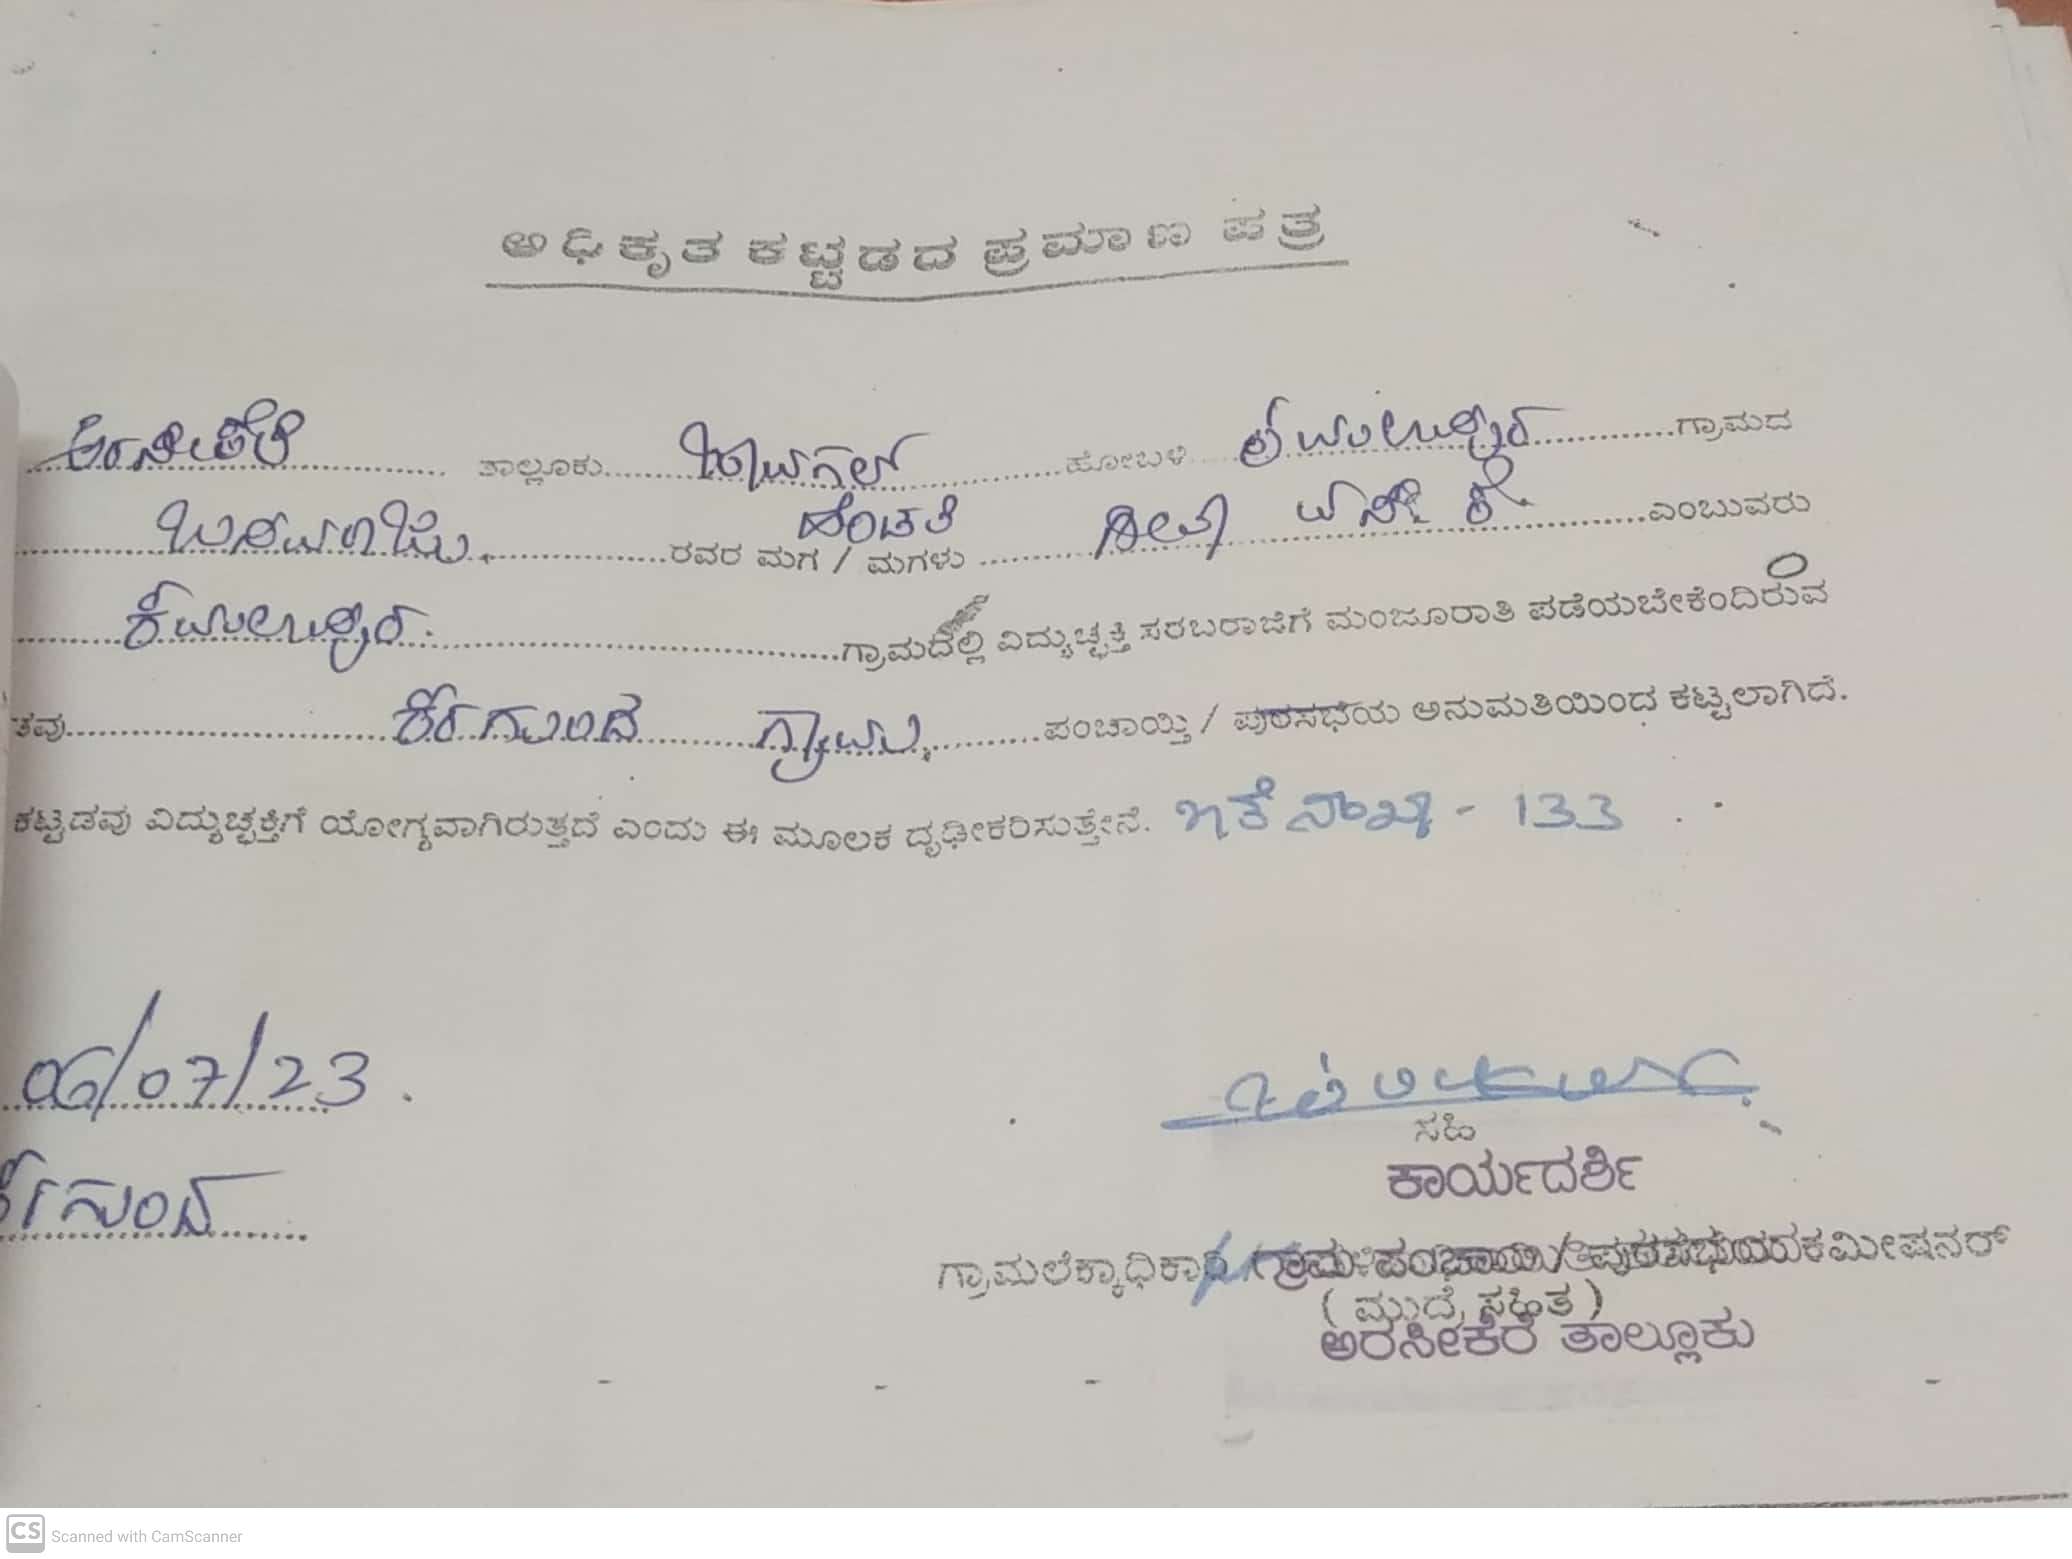 ಅಧಿಕೃತ ಕಟ್ಟಡದ ಪ್ರಮಾಣ ಪತ್ರ
ಅರಸೀಕೆರೆ ತಾಲ್ಲೂಕು ಜಾವಗಲ್ ಹೋಬಳಿ ಗ್ರಾಮದ
ಬಸವರಾಜು ರವರ ಮಗ / ಮಗಳು ಹೆಂಡತಿ ಎಂಬುವರು
ಗ್ರಾಮದಲ್ಲಿ ವಿದ್ಯುಚ್ಛಕ್ತಿ ಸರಬರಾಜಿಗೆ ಮಂಜೂರಾತಿ ಪಡೆಯಬೇಕೆಂದಿರುವ
ತವು ಕೆರಗುಂದ ಗ್ರಾಮ ಪಂಚಾಯ್ತಿ / ಪುರಸಭೆಯ ಅನುಮತಿಯಿಂದ ಕಟ್ಟಲಾಗಿದೆ.
ಕಟ್ಟಡವು ವಿದ್ಯುಚ್ಛಕ್ತಿಗೆ ಯೋಗ್ಯವಾಗಿರುತ್ತದೆ ಎಂದು ಈ ಮೂಲಕ ದೃಢೀಕರಿಸುತ್ತೇನೆ. - 133
06/07/23
ಕೆರಗುಂದ
ಸಹಿ
ಕಾರ್ಯದರ್ಶಿ
ಗ್ರಾಮಲೆಕ್ಕಾಧಿಕಾರಿ / ಕಮೀಷನರ್
( ಮುದ್ರೆ ಸಹಿತ )
ಅರಸೀಕೆರೆ ತಾಲ್ಲೂಕು
CS Scanned with CamScanner